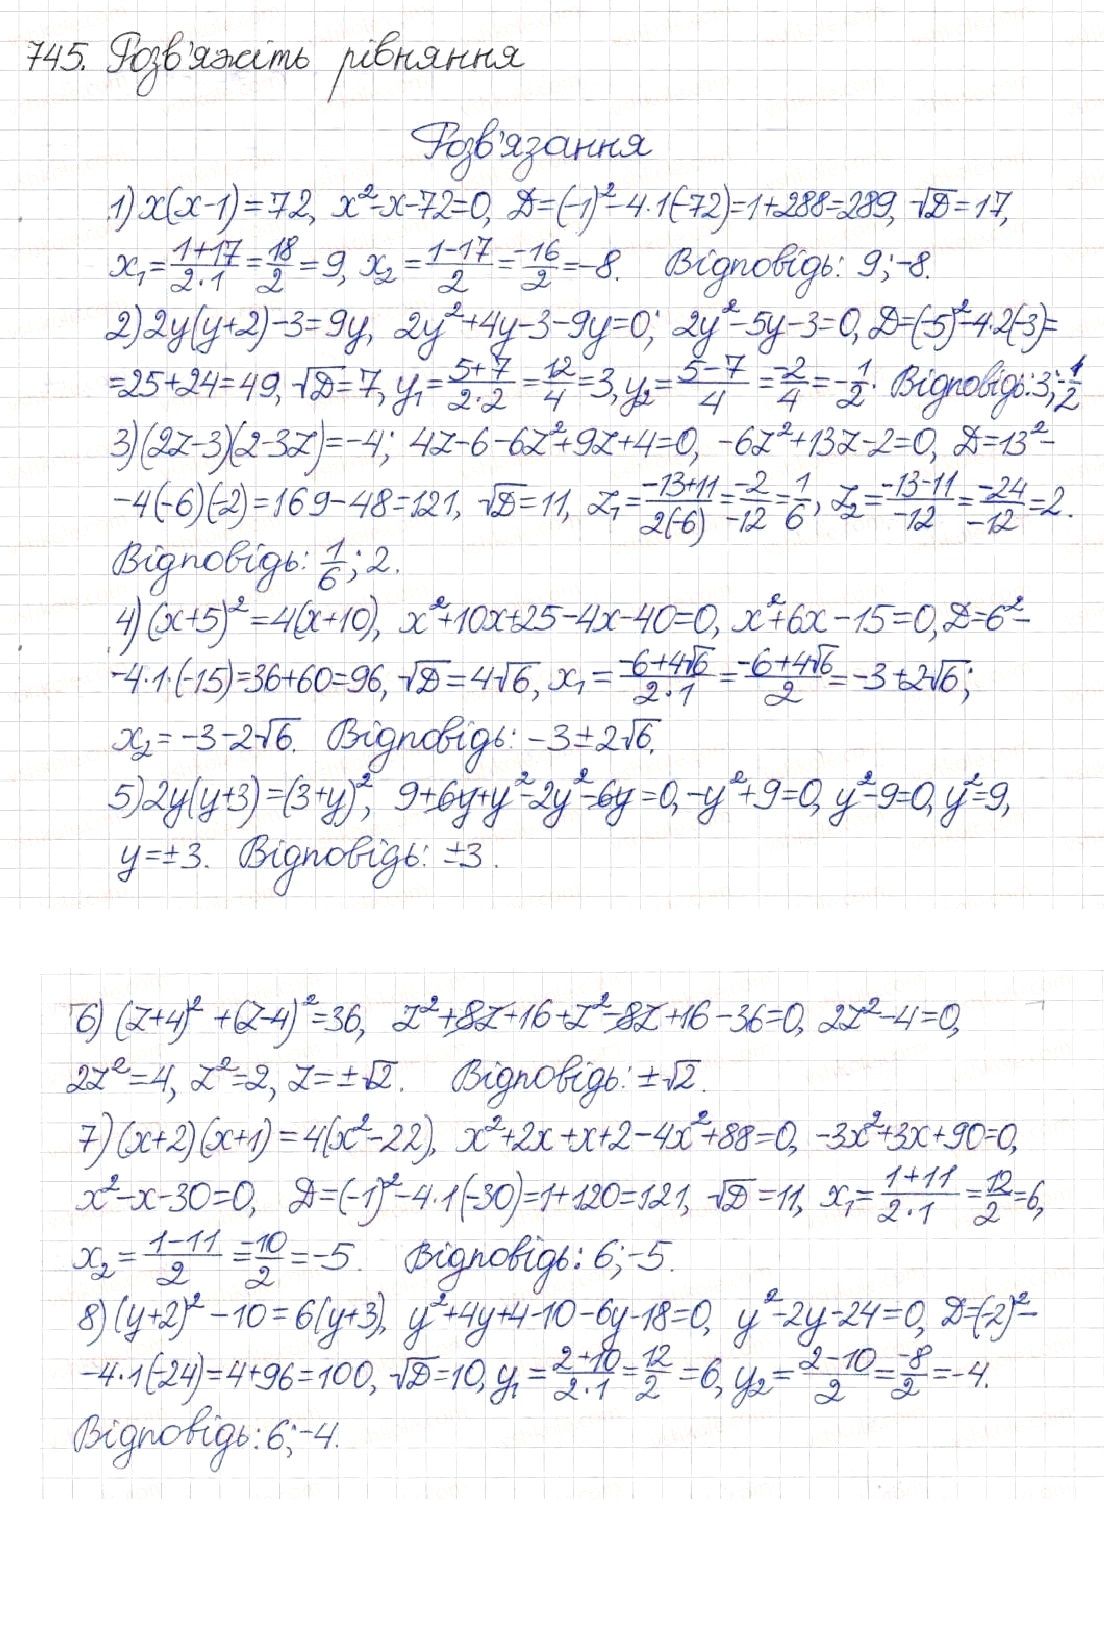 745. Розв'яжіть рівняння
Розв'язання
1) x(x-1)=72, x²-x-72=0, D=(-1)²-4·1(-72)=1+288=289, √D=17,
x₁=(1+17)/(2·1)=18/2=9, x₂=(1-17)/2=-16/2=-8. Відповідь: 9;-8.
2) 2y(y+2)-3=9y, 2y²+4y-3-9y=0; 2y²-5y-3=0, D=(-5)²-4·2(-3)=
=25+24=49, √D=7, y₁=(5+7)/(2·2)=12/4=3, y₂=(5-7)/4=-2/4=-1/2. Відповідь: 3;-1/2
3) (2z-3)(2-3z)=-4; 4z-6-6z²+9z+4=0, -6z²+13z-2=0, D=13²-
-4(-6)(-2)=169-48=121, √D=11, z₁=(-13+11)/(2(-6))=-2/-12=1/6, z₂=(-13-11)/-12=-24/-12=2.
Відповідь: 1/6; 2.
4) (x+5)²=4(x+10), x²+10x+25-4x-40=0, x²+6x-15=0, D=6²-
-4·1·(-15)=36+60=96, √D=4√6, x₁=(-6+4√6)/(2·1)=(-6+4√6)/2=-3+2√6;
x₂=-3-2√6. Відповідь: -3±2√6.
5) 2y(y+3)=(3+y)², 9+6y+y²-2y²-6y=0, -y²+9=0, y²-9=0, y²=9,
y=±3. Відповідь: ±3.
6) (z+4)²+(z-4)²=36, z²+8z+16+z²-8z+16-36=0, 2z²-4=0,
2z²=4, z²=2, z=±√2. Відповідь: ±√2.
7) (x+2)(x+1)=4(x²-22), x²+2x+x+2-4x²+88=0, -3x²+3x+90=0,
x²-x-30=0, D=(-1)²-4·1(-30)=1+120=121, √D=11, x₁=(1+11)/(2·1)=12/2=6,
x₂=(1-11)/2=-10/2=-5. Відповідь: 6;-5.
8) (y+2)²-10=6(y+3), y²+4y+4-10-6y-18=0, y²-2y-24=0, D=(-2)²-
-4·1(-24)=4+96=100, √D=10, y₁=(2+10)/(2·1)=12/2=6, y₂=(2-10)/2=-8/2=-4.
Відповідь: 6;-4.